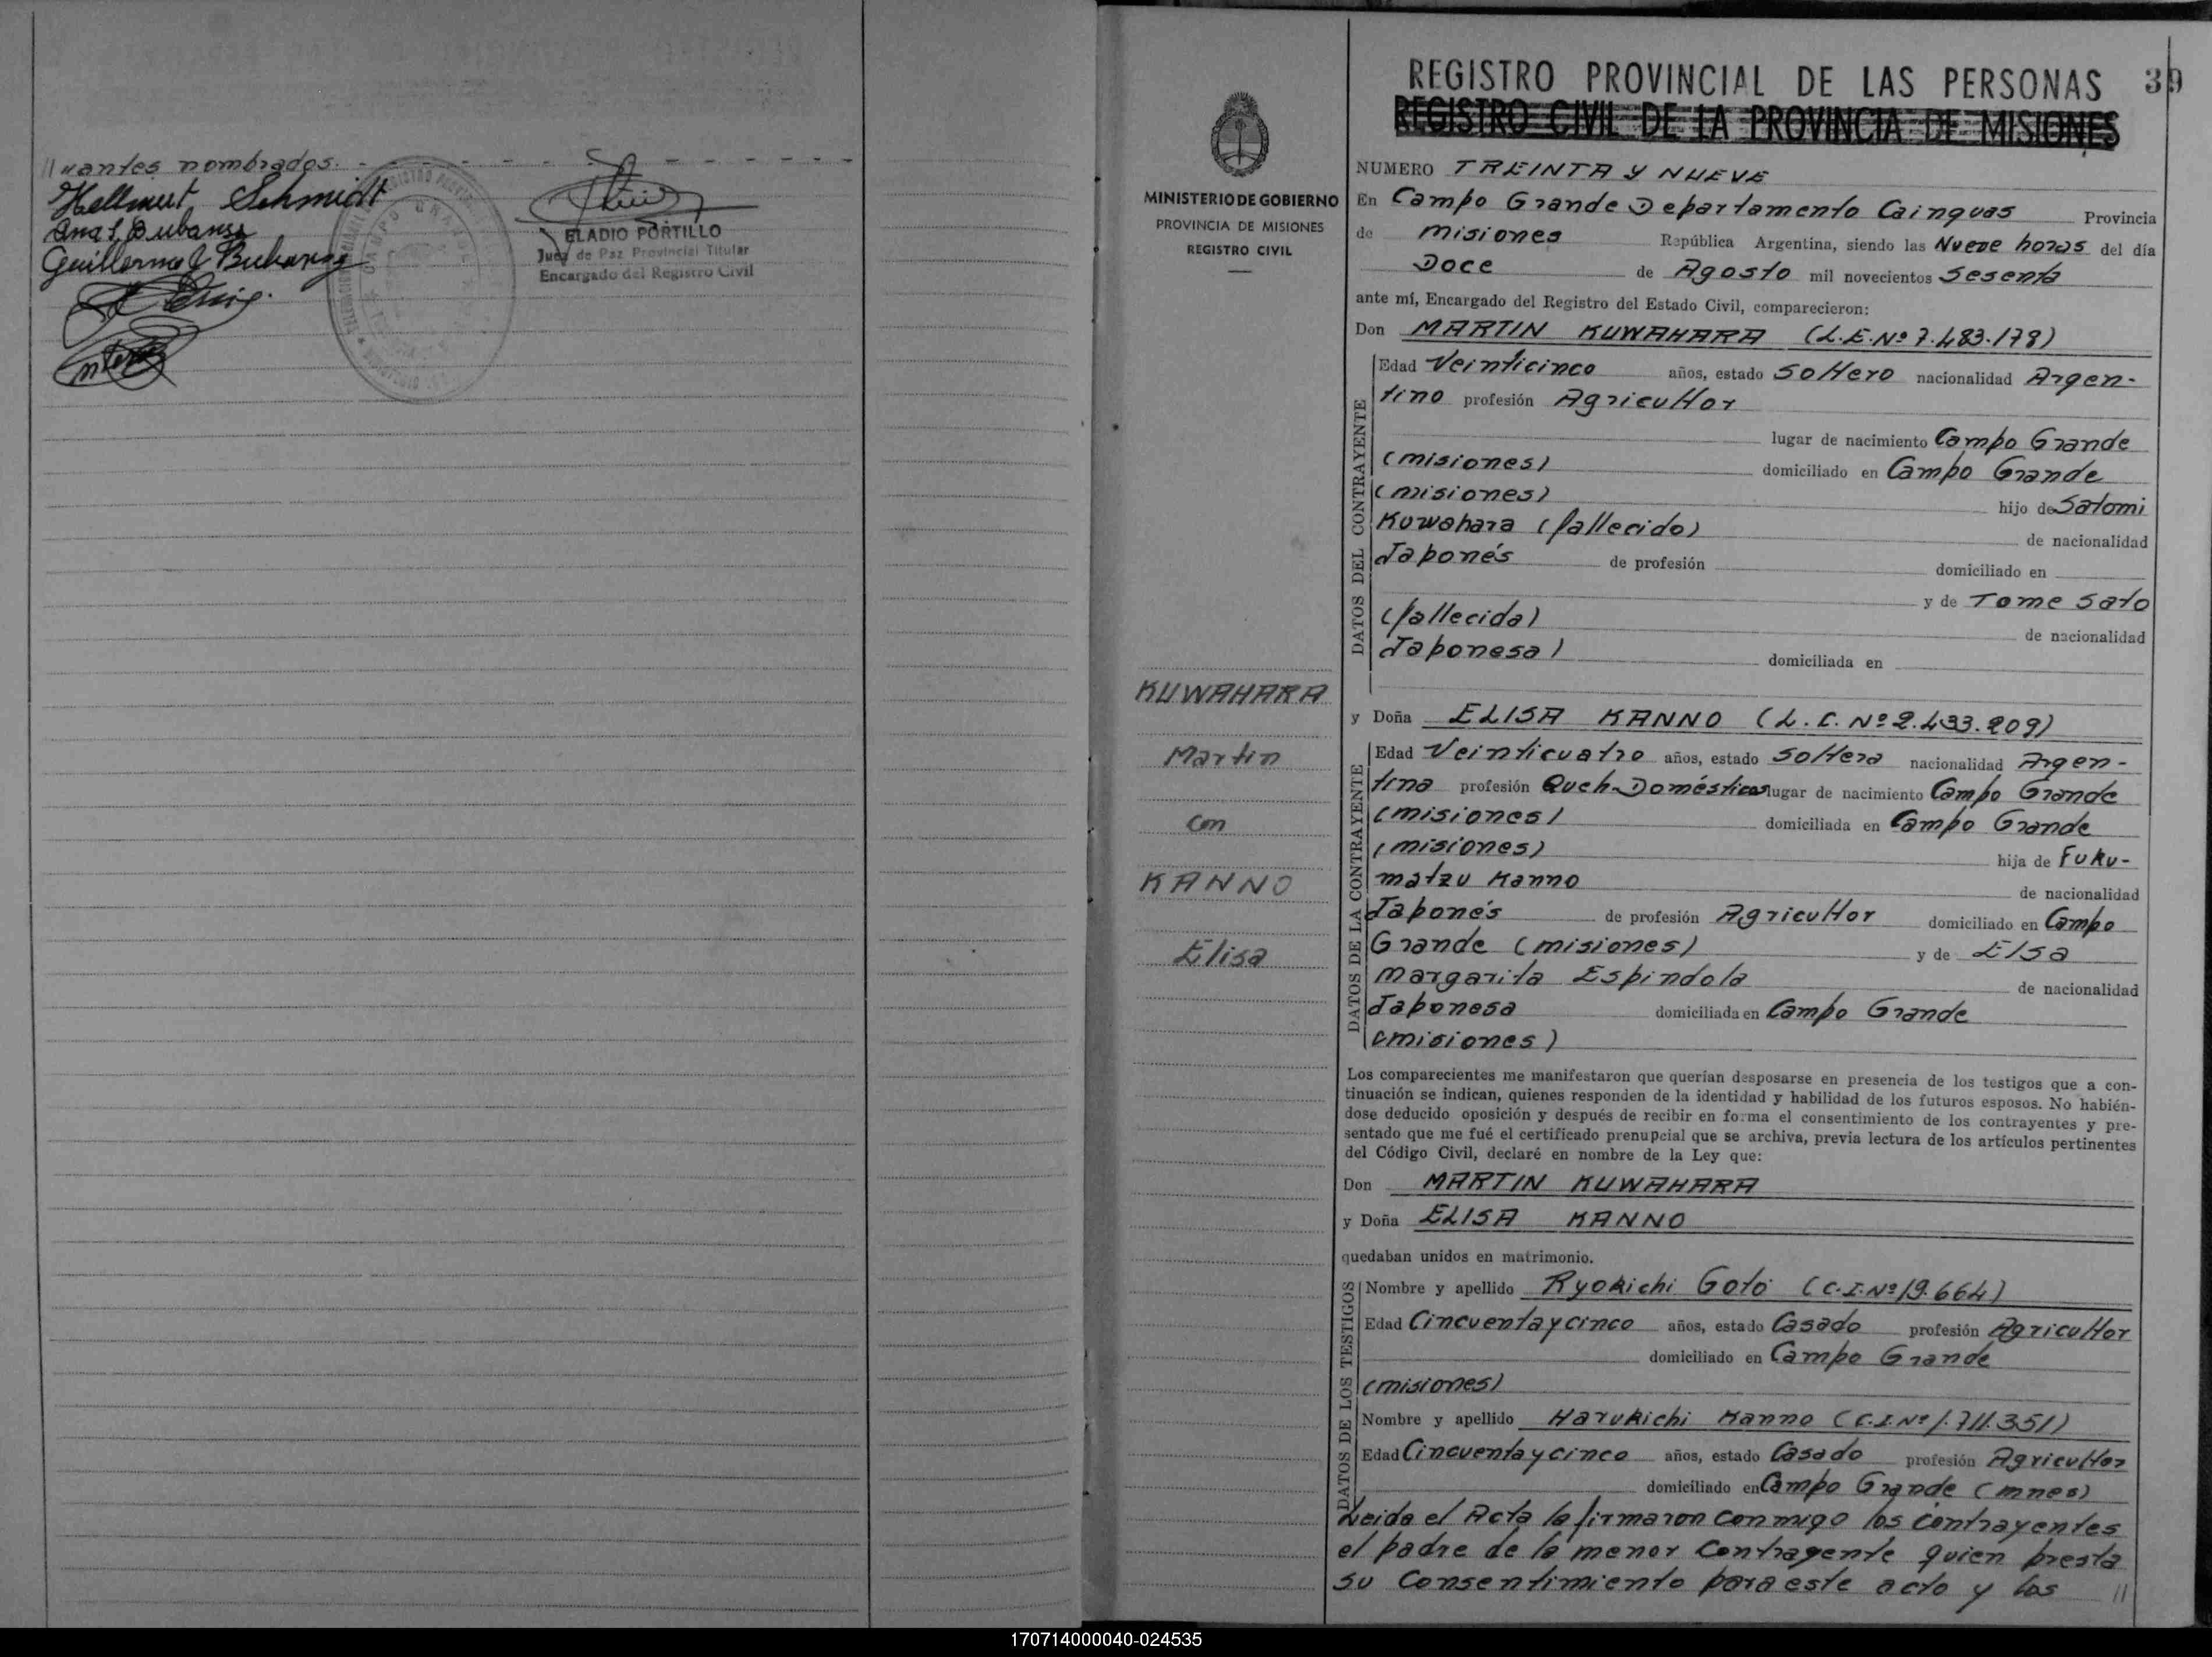 //uantes nombrados. - - - - - - - - -
Hellmut Schmidt
ELADIO PORTILLO
Juez de Paz Provincial Titular
Encargado del Registro Civil
MINISTERIO DE GOBIERNO
PROVINCIA DE MISIONES
REGISTRO CIVIL
KUWAHARA
Martin
con
KANNO
Elisa
REGISTRO PROVINCIAL DE LAS PERSONAS 39
REGISTRO CIVIL DE LA PROVINCIA DE MISIONES
NUMERO TREINTA Y NUEVE
En Campo Grande Departamento Cainguas Provincia
de Misiones República Argentina, siendo las Nueve horas del día
Doce de Agosto mil novecientos Sesenta
ante mí, Encargado del Registro del Estado Civil, comparecieron:
Don MARTIN KUWAHARA (L.E. Nº 7.483.178)
DATOS DEL CONTRAYENTE
Edad Veinticinco años, estado Soltero nacionalidad Argen-
tino profesión Agricultor
lugar de nacimiento Campo Grande
(Misiones) domiciliado en Campo Grande
(Misiones) hijo de Satomi
Kuwahara (fallecido) de nacionalidad
Japonés de profesión domiciliado en
y de Tome Sato
(fallecida) de nacionalidad
Japonesa) domiciliada en
y Doña ELISA KANNO (L.C. Nº 2.433.209)
DATOS DE LA CONTRAYENTE
Edad Veinticuatro años, estado Soltera nacionalidad Argen-
tina profesión Queh-Domésticos lugar de nacimiento Campo Grande
(Misiones) domiciliada en Campo Grande
(Misiones) hija de Fuku-
matzu Kanno de nacionalidad
Japonés de profesión Agricultor domiciliado en Campo
Grande (Misiones) y de Elsa
Margarita Espindola de nacionalidad
Japonesa domiciliada en Campo Grande
(Misiones)
Los comparecientes me manifestaron que querían desposarse en presencia de los testigos que a con-
tinuación se indican, quienes responden de la identidad y habilidad de los futuros esposos. No habién-
dose deducido oposición y después de recibir en forma el consentimiento de los contrayentes y pre-
sentado que me fué el certificado prenupcial que se archiva, previa lectura de los artículos pertinentes
del Código Civil, declaré en nombre de la Ley que:
Don MARTIN KUWAHARA
y Doña ELISA KANNO
quedaban unidos en matrimonio.
DATOS DE LOS TESTIGOS
Nombre y apellido Ryokichi Goto (C.I. Nº 19.664)
Edad Cincuenta y cinco años, estado Casado profesión Agricultor
domiciliado en Campo Grande
(Misiones)
Nombre y apellido Harukichi Kanno (C.I. Nº 1.711.351)
Edad Cincuenta y cinco años, estado Casado profesión Agricultor
domiciliado en Campo Grande (Mnes)
Leida el Acta la firmaron conmigo los contrayentes
el padre de la menor contrayente quien presta
su Consentimiento para este acto y los //
170714000040-024535